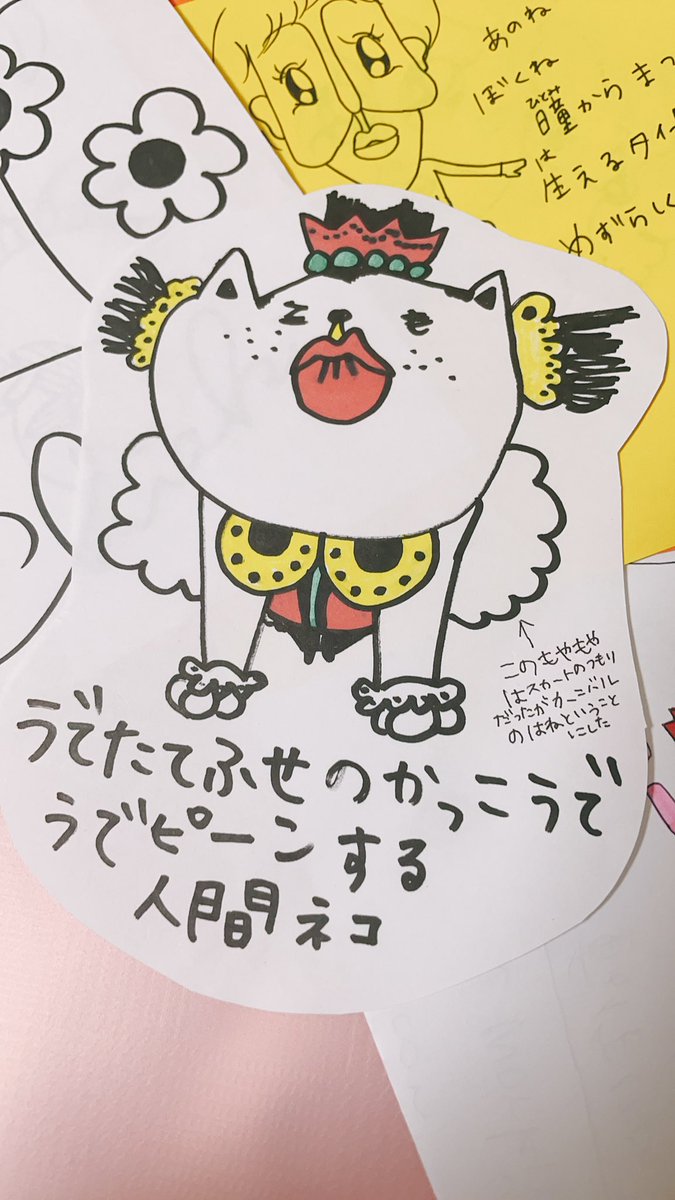 あのね
ぼくね
ひとみ
瞳からまつ
は
生えるタイ
めずらしく
このもやもや
はスカートのつもり
だったがカーニバル
のはねということ
にした
うでたてふせのかっこうで
うでピーンする
人間ネコ